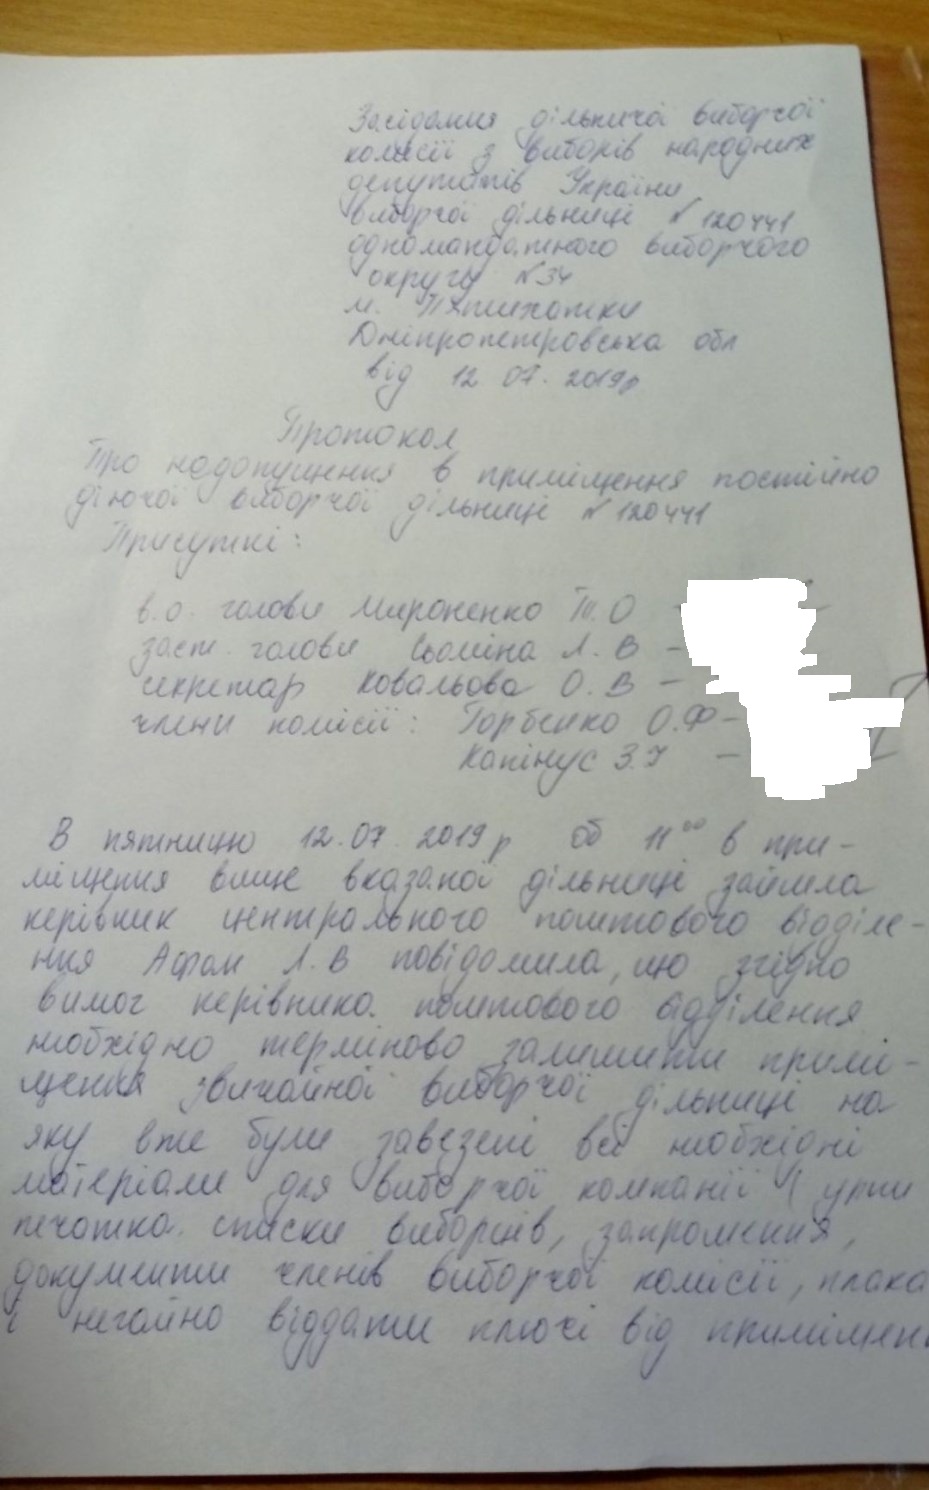 Засідання дільничої виборчої
комісії з виборів народних
депутатів України
виборчої дільниці № 120441
одномандатного виборчого
округу №34
м. Пятихатки
Дніпропетровська обл
від 12 07. 2019р
Протокол
Про недопущення в приміщення постійно
діючої виборчої дільниці № 120441
Присутні:
в.о. голови Мироненко Т.О -
заст. голови Сьоміна Л. В -
секретар Ковальова О. В -
члени комісії: Горбенко О.Ф-
Капінус З.І -
В пятницю 12.07. 2019р об 11⁰⁰ в при-
міщення вище вказаної дільниці зайшла
керівник центрального поштового відділе-
ння Афон Л. В повідомила, що згідно
вимог керівника поштового відділення
необхідно терміново залишити примі-
щення звичайної виборчої дільниці на
яку вже були завезені всі необхідні
матеріали для виборчої компанії ( урни
печатка. списки виборців, запрошення,
документи членів виборчої комісії, плака
і негайно віддати ключі від приміщен